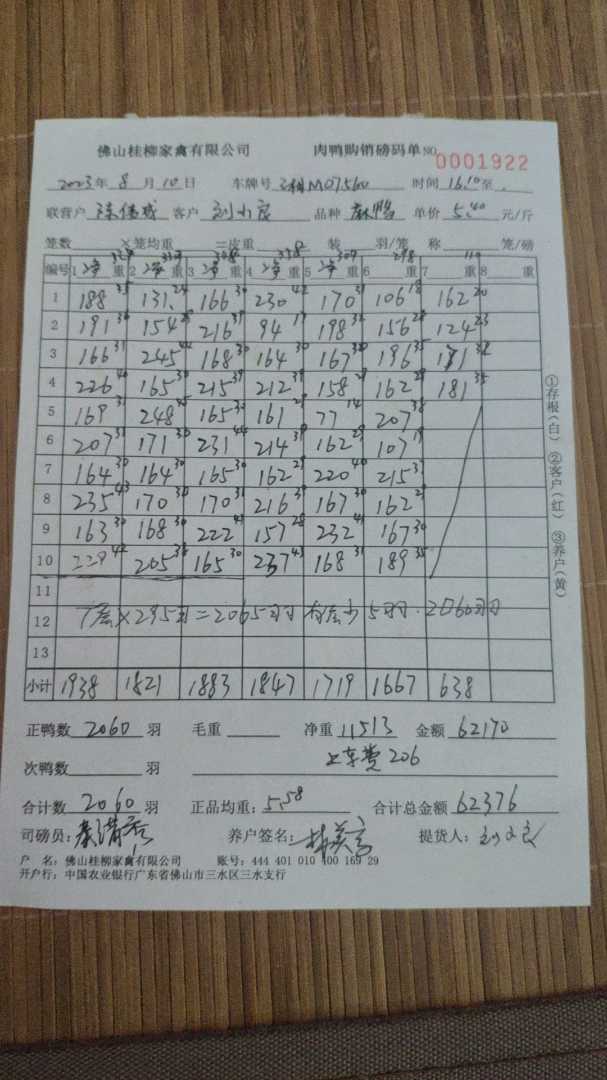 佛山桂柳家禽有限公司 肉鸭购销磅码单 NO 0001922
2023年8月10日 车牌号 M07560 时间 16:10至
联营户 客户 品种 麻鸭 单价 5.40 元/斤
笼数 ×笼均重 =皮重 装 羽/笼 称 笼/磅
编号 1 净重 2 净重 3 净重 4 净重 5 净重 6 重 7 重 8 重
1 188 35 131 24 166 30 230 42 170 31 106 18 162 20
2 191 36 154 28 216 39 94 17 198 36 156 28 124 23
3 166 31 245 44 168 30 164 30 167 30 196 35 171
4 226 40 165 30 215 39 212 39 158 29 162 28 181 35
5 169 31 248 45 165 30 161 29 77 14 207 38
6 207 171 30 231 44 214 39 162 29 107 19
7 164 30 164 30 165 30 162 29 220 40 215 37
8 235 43 170 30 170 31 216 39 167 30 162 29
9 163 30 168 30 222 41 157 28 232 41 167 30
10 229 42 205 38 165 30 237 43 168 31 189 35
11
12 7层×295羽=2065羽 有层少5羽 2060羽
13
小计 1938 1821 1883 1847 1719 1667 638
正鸭数 2060 羽 毛重 净重 11513 金额 62170
次鸭数 羽 上车费 206
合计数 2060 羽 正品均重: 5.58 合计总金额 62376
司磅员: 养户签名: 提货人:
户 名: 佛山桂柳家禽有限公司 账号: 444 401 010 400 169 29
开户行: 中国农业银行广东省佛山市三水区三水支行
①存根(白) ②客户(红) ③养户(黄)